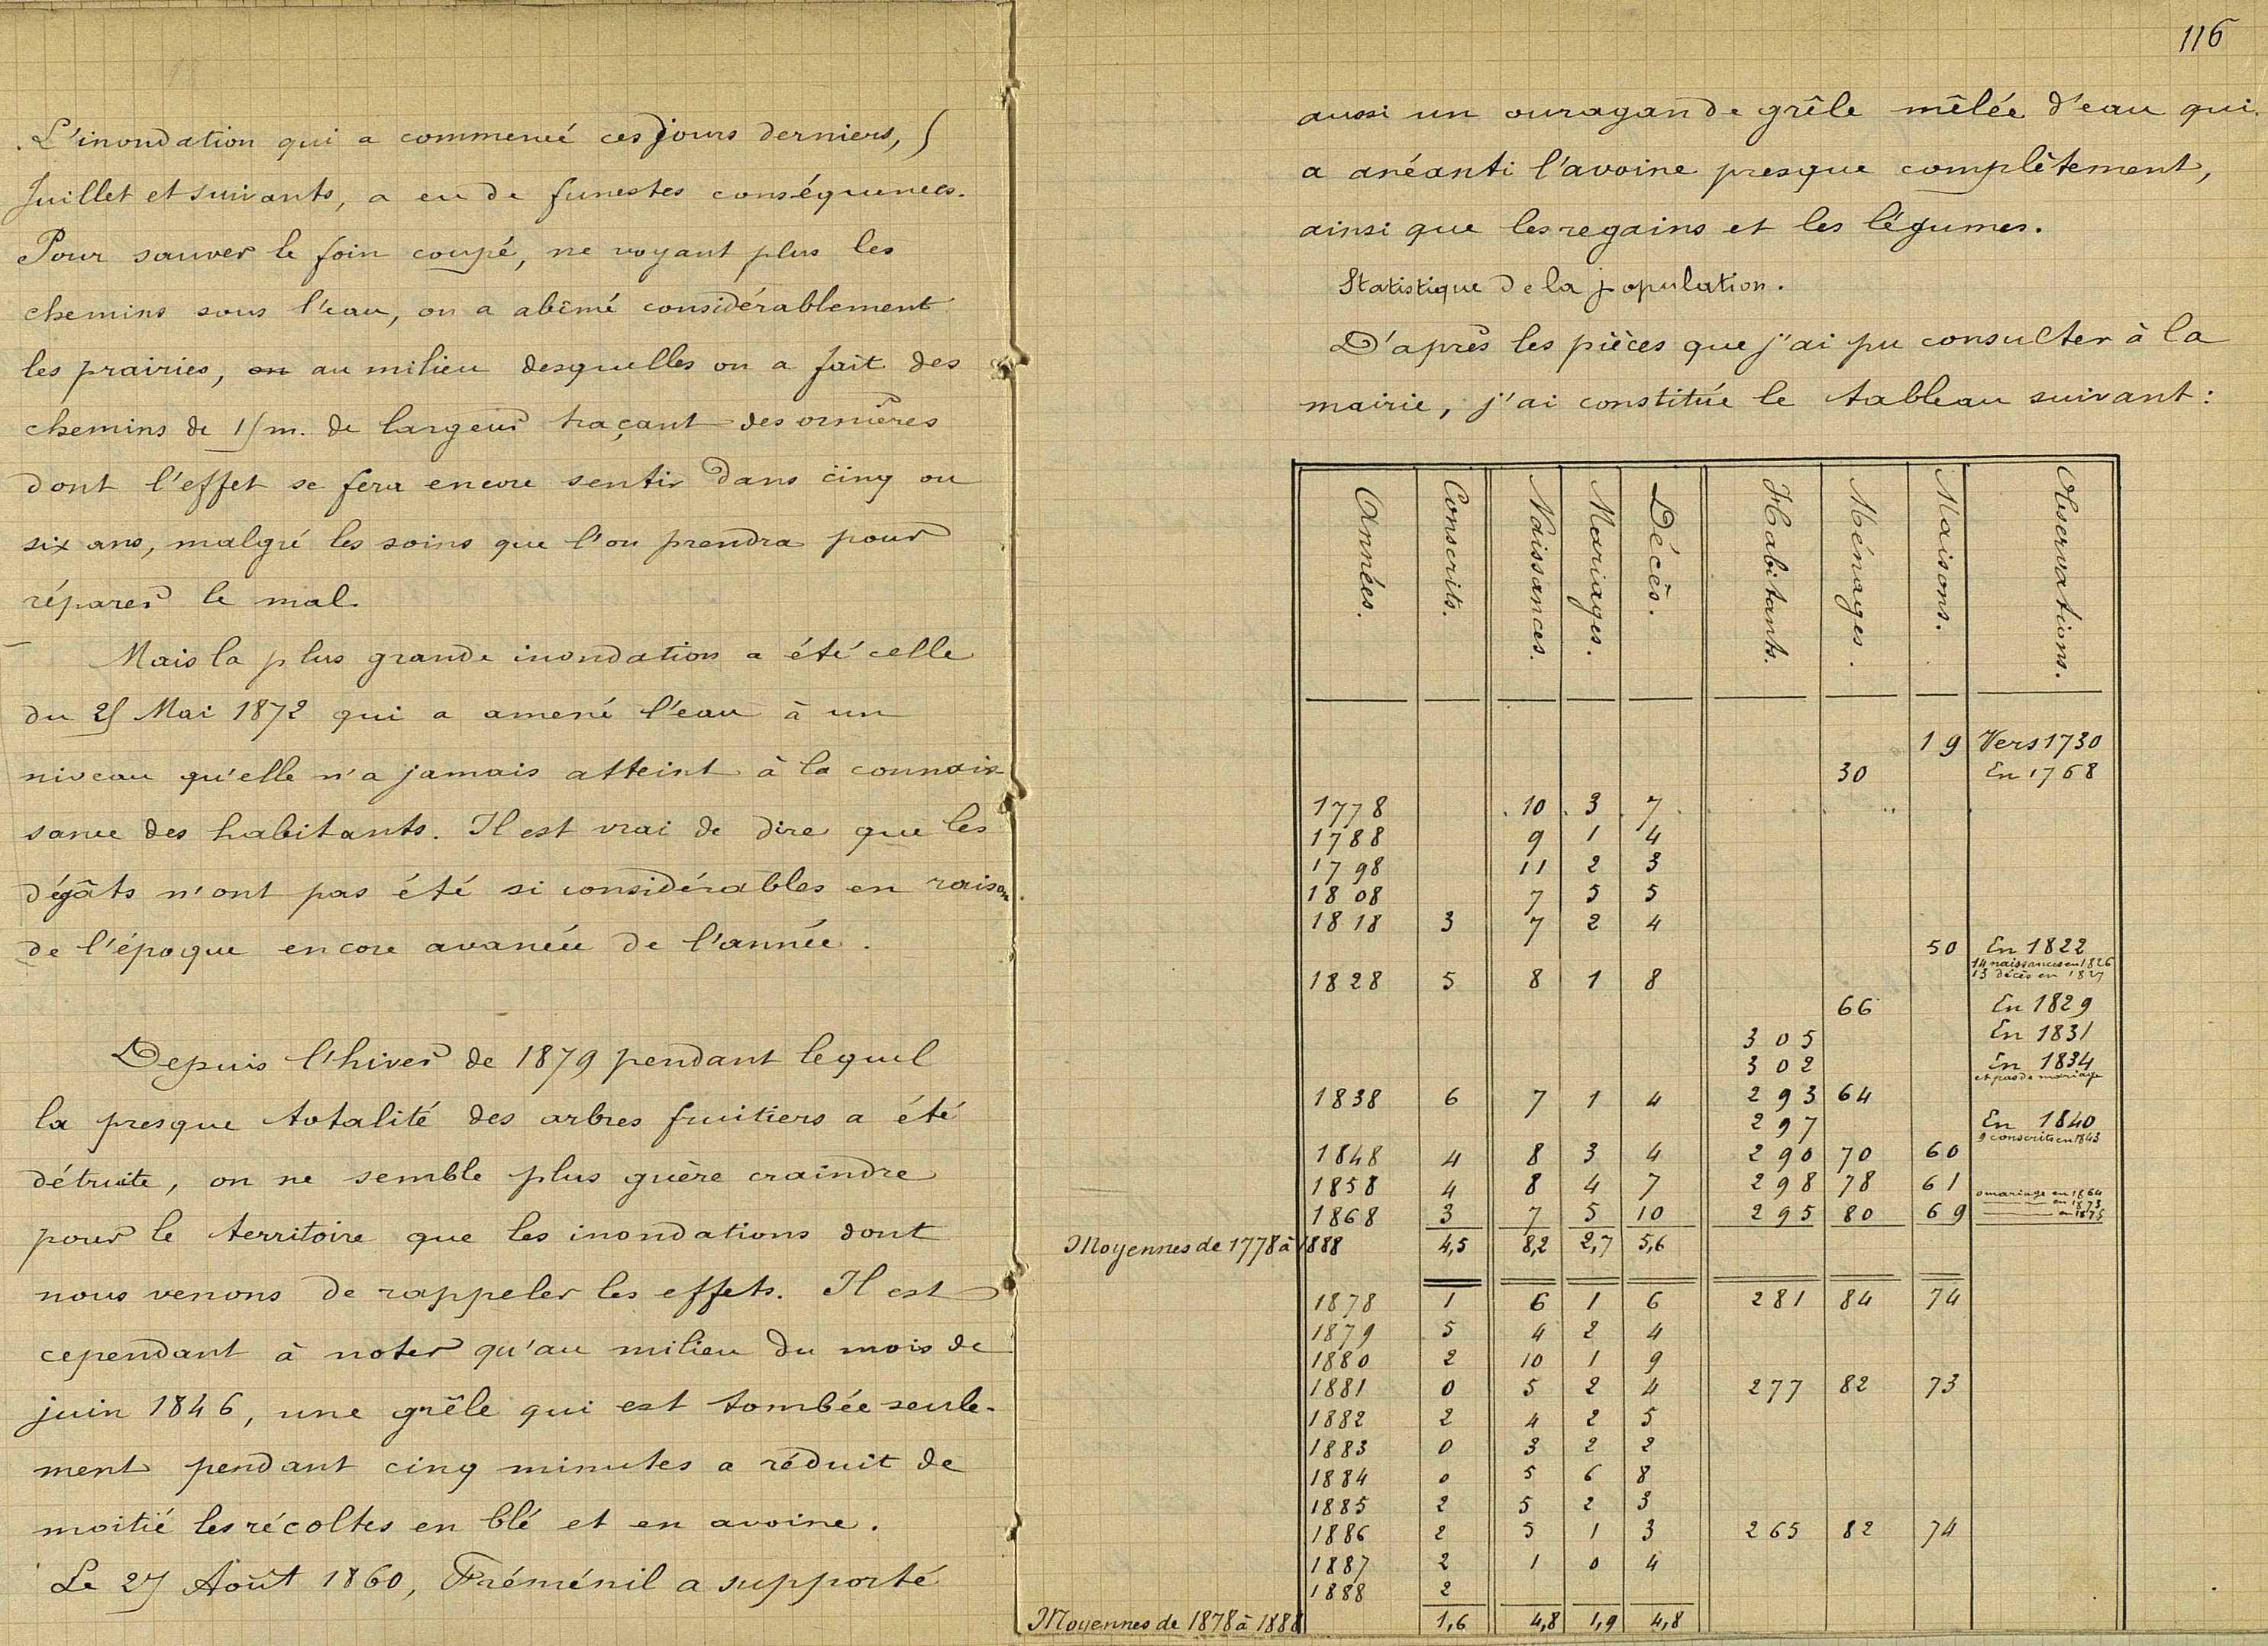 L'inondation qui a commencé ces jours derniers, 5
Juillet et suivants, a eu de funestes conséquences.
Pour sauver le foin coupé, ne voyant plus les
chemins sous l'eau, on a abîmé considérablement
les prairies, on au milieu desquelles on a fait des
chemins de 15 m. de largeur traçant des ornières
dont l'effet se fera encore sentir dans cinq ou
six ans, malgré les soins que l'on prendra pour
réparer le mal.
Mais la plus grande inondation a été celle
du 25 Mai 1872 qui a amené l'eau à un
niveau qu'elle n'a jamais atteint à la connais-
sance des habitants. Il est vrai de dire que les
dégâts n'ont pas été si considérables en raison
de l'époque encore avancée de l'année.
Depuis l'hiver de 1879 pendant lequel
la presque totalité des arbres fruitiers a été
détruite, on ne semble plus guère craindre
pour le territoire que les inondations dont
nous venons de rappeler les effets. Il est
cependant à noter qu'au milieu du mois de
juin 1846, une grêle qui est tombée seule-
ment pendant cinq minutes a réduit de
moitié les récoltes en blé et en avoine.
Le 27 Août 1860, Fréménil a supporté
116
aussi un ouragan de grêle mêlée d'eau qui
a anéanti l'avoine presque complètement,
ainsi que les regains et les légumes.
Statistique de la population.
D'après les pièces que j'ai pu consulter à la
mairie, j'ai constitué le tableau suivant:
Années. Conscrits. Naissances. Mariages. Décès. Habitants. Ménages. Maisons. Observations.
19 Vers 1730
30 En 1768
1778 10 3 7
1788 9 1 4
1798 11 2 3
1808 7 5 5
1818 3 7 2 4
50 En 1822
14 naissances en 1826
1828 5 8 1 8 13 décès en 1827
66 En 1829
305 En 1831
302 En 1834
et pas de mariage
1838 6 7 1 4 293 64
297 En 1840
9 conscrits en 1843
1848 4 8 3 4 290 70 60
1858 4 8 4 7 298 78 61
0 mariage en 1864
en 1873
1868 3 7 5 10 295 80 69 en 1875
Moyennes de 1778 à 1888 4,5 8,2 2,7 5,6
1878 1 6 1 6 281 84 74
1879 5 4 2 4
1880 2 10 1 9
1881 0 5 2 4 277 82 73
1882 2 4 2 5
1883 0 3 2 2
1884 0 5 6 8
1885 2 5 2 3
1886 2 5 1 3 265 82 74
1887 2 1 0 4
1888 2
Moyennes de 1878 à 1888 1,6 4,8 1,9 4,8